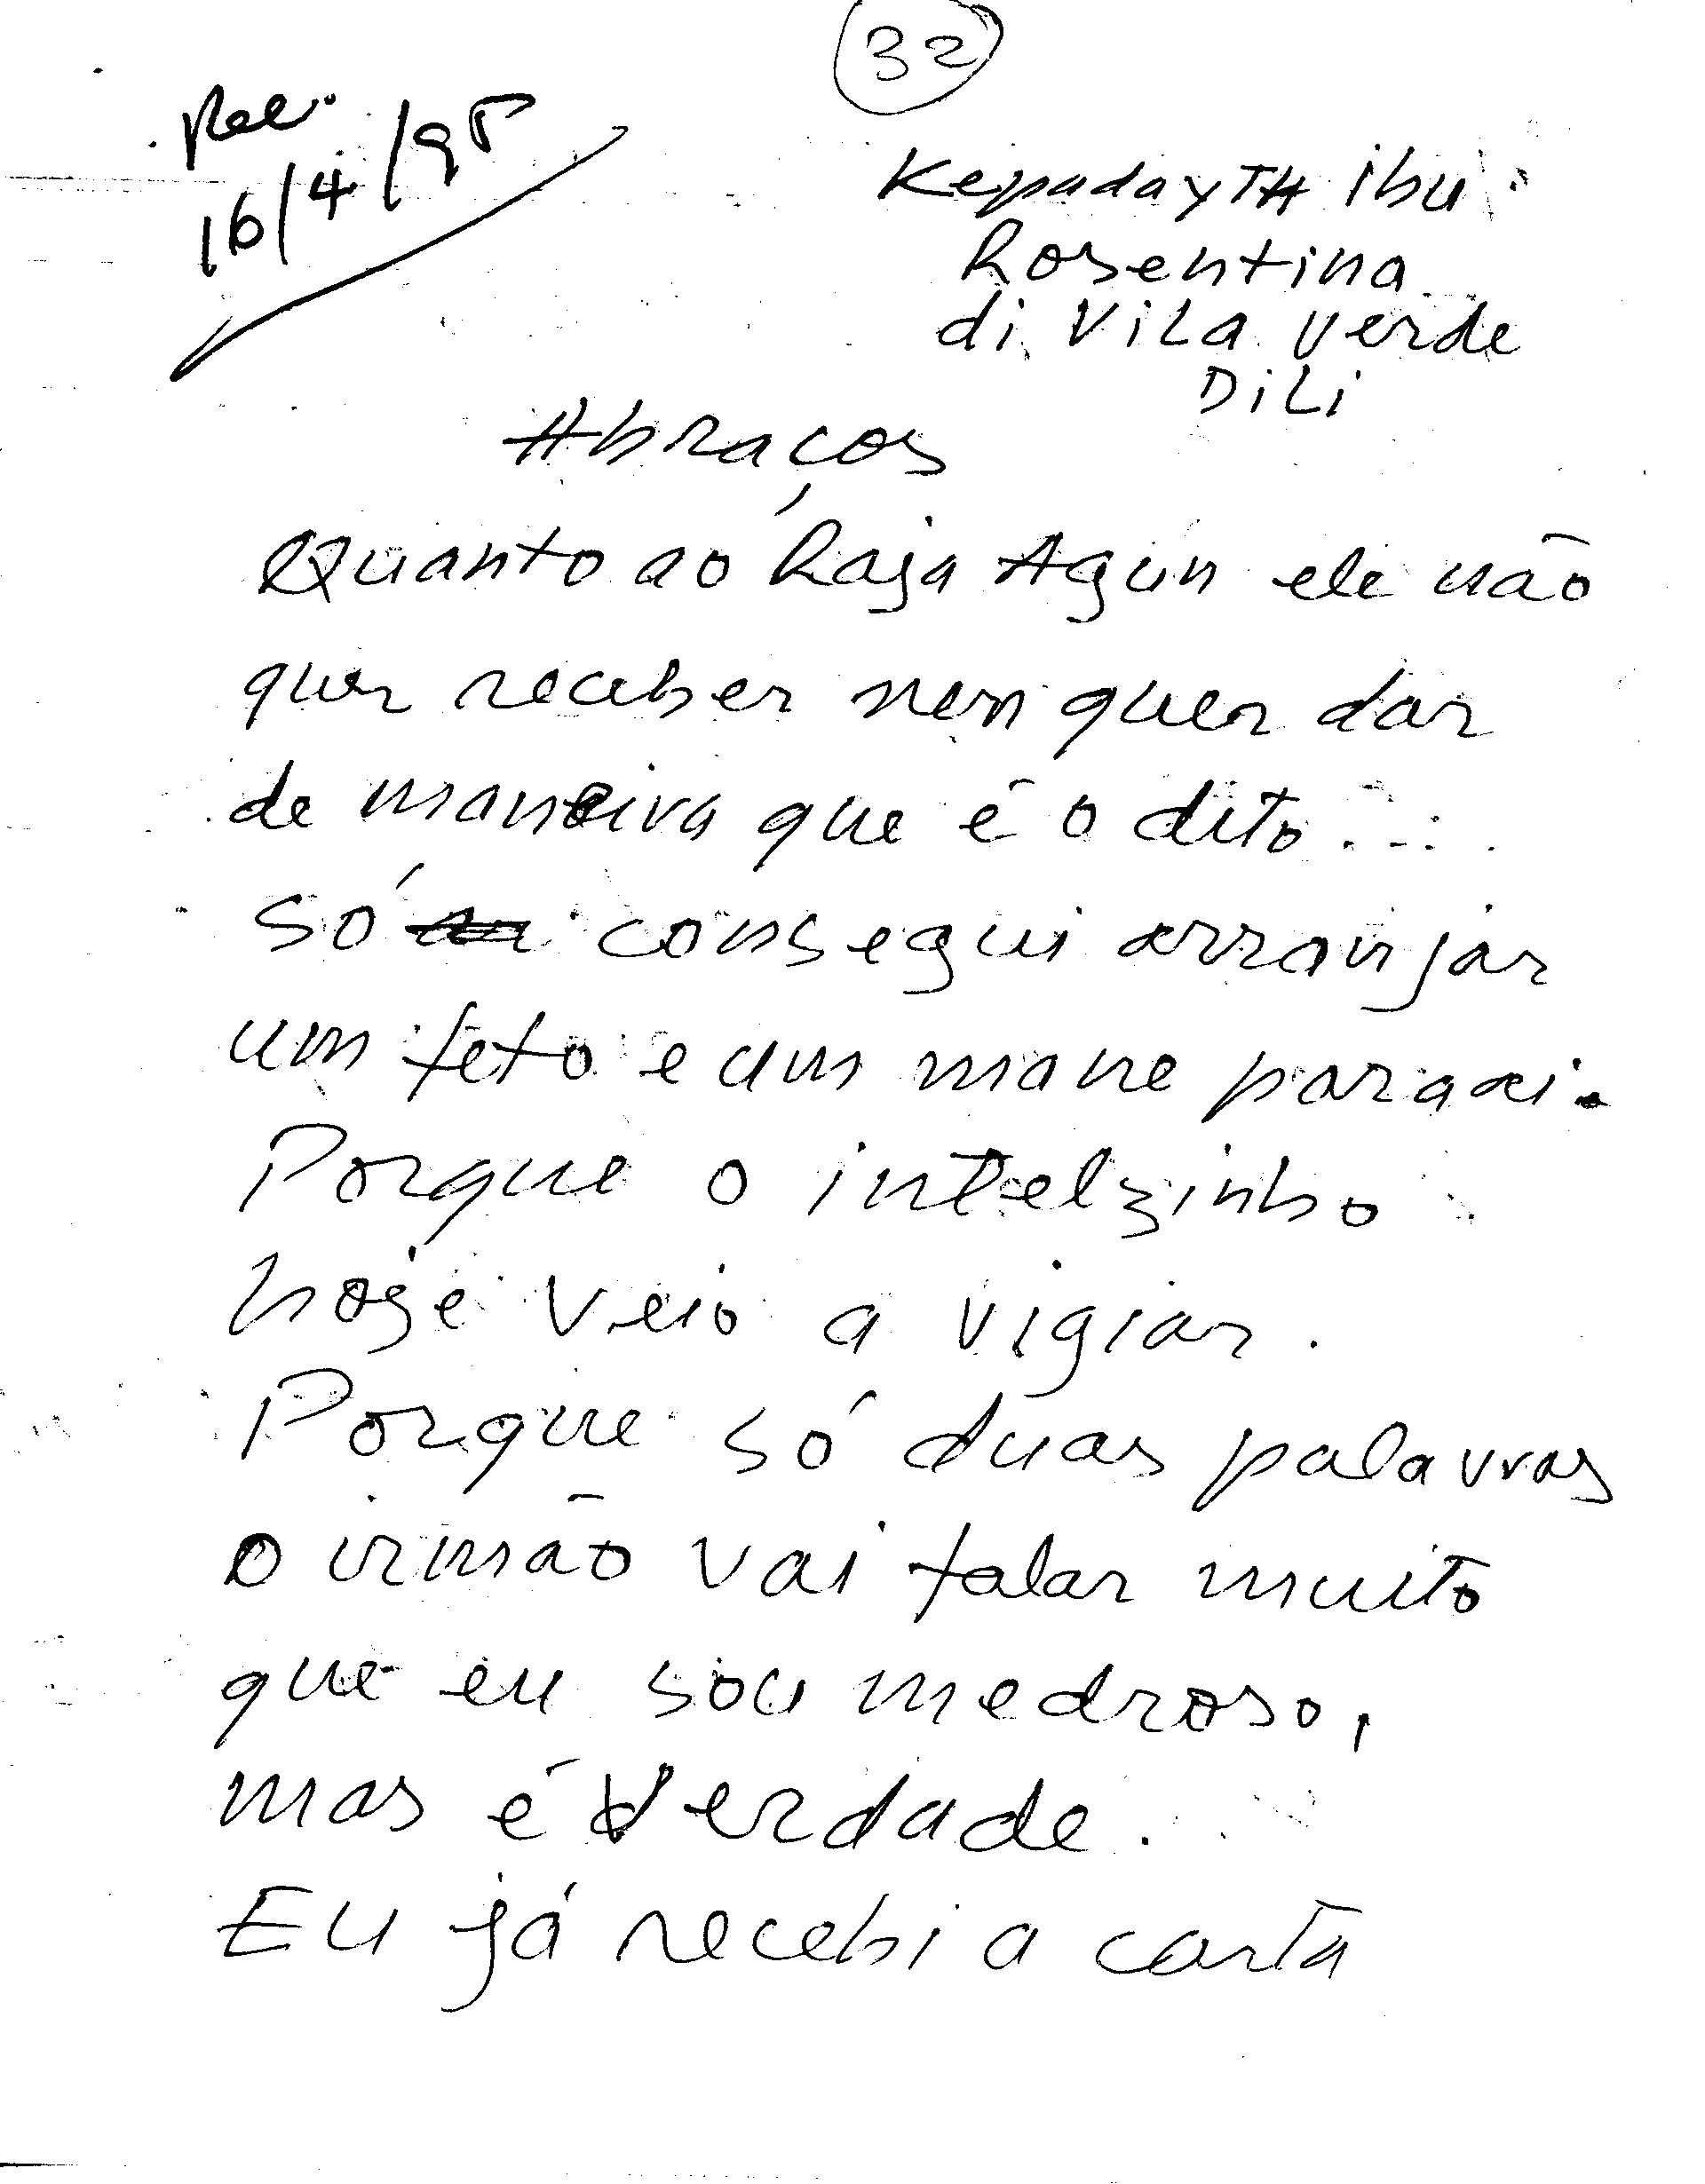 32
Rec.
16/4/95
Kepada YTH ibu
Rosentina
di Vila Verde
DiLi
Abraços
Quanto ao Raja Agun ele não
quer receber nem quer dar
de maneira que é o dito ....
Só consegui arranjar
um feto e um mane para ai.
Porque o intelzinho
hoje veio a vigiar.
Porque só duas palavras
o irmão vai falar muito
que eu sou medroso,
mas é verdade.
Eu já recebi a carta